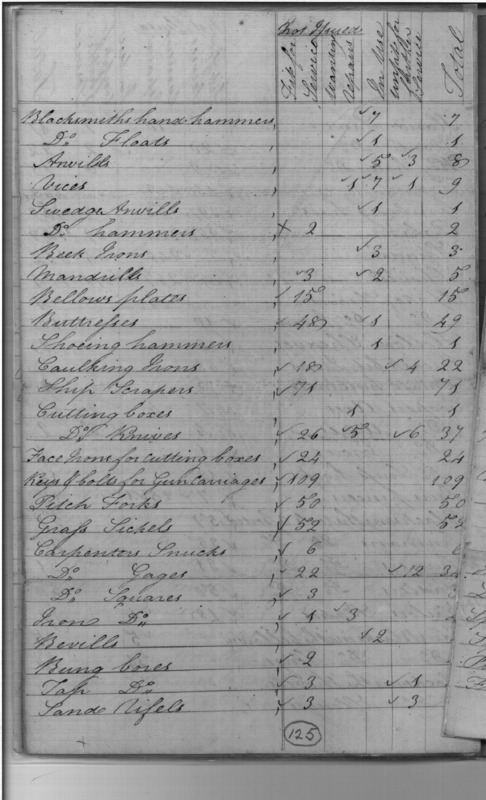 Not Issued
Fit for Service
wanting repairs
In Use
unfit for further Service
Total
Blacksmiths hand hammers, 7 7
Do Floats 1 1
Anvills 5 3 8
Vices 1 7 1 9
Swedge Anvills 1 1
Do hammers 2 2
Beek Irons 3 3
Mandrills 3 2 5
Bellows plates 15 15
Buttresses 48 1 49
Shoeing hammers 1 1
Caulking Irons 18 4 22
Ship Scrapers 71 71
Cutting boxes 1 1
Do Knives 26 5 6 37
Face Irons for cutting boxes 24 24
Keys & bolts for Gun Carriages 109 109
Pitch Forks 50 50
Grass Sickels 52 52
Carpenters 6
Do Gages 22 12
Do Squares 3
Iron Do 1 3
Bevills 2
Bung bores 2
Tap Do 3 1
Sand 3 3
125